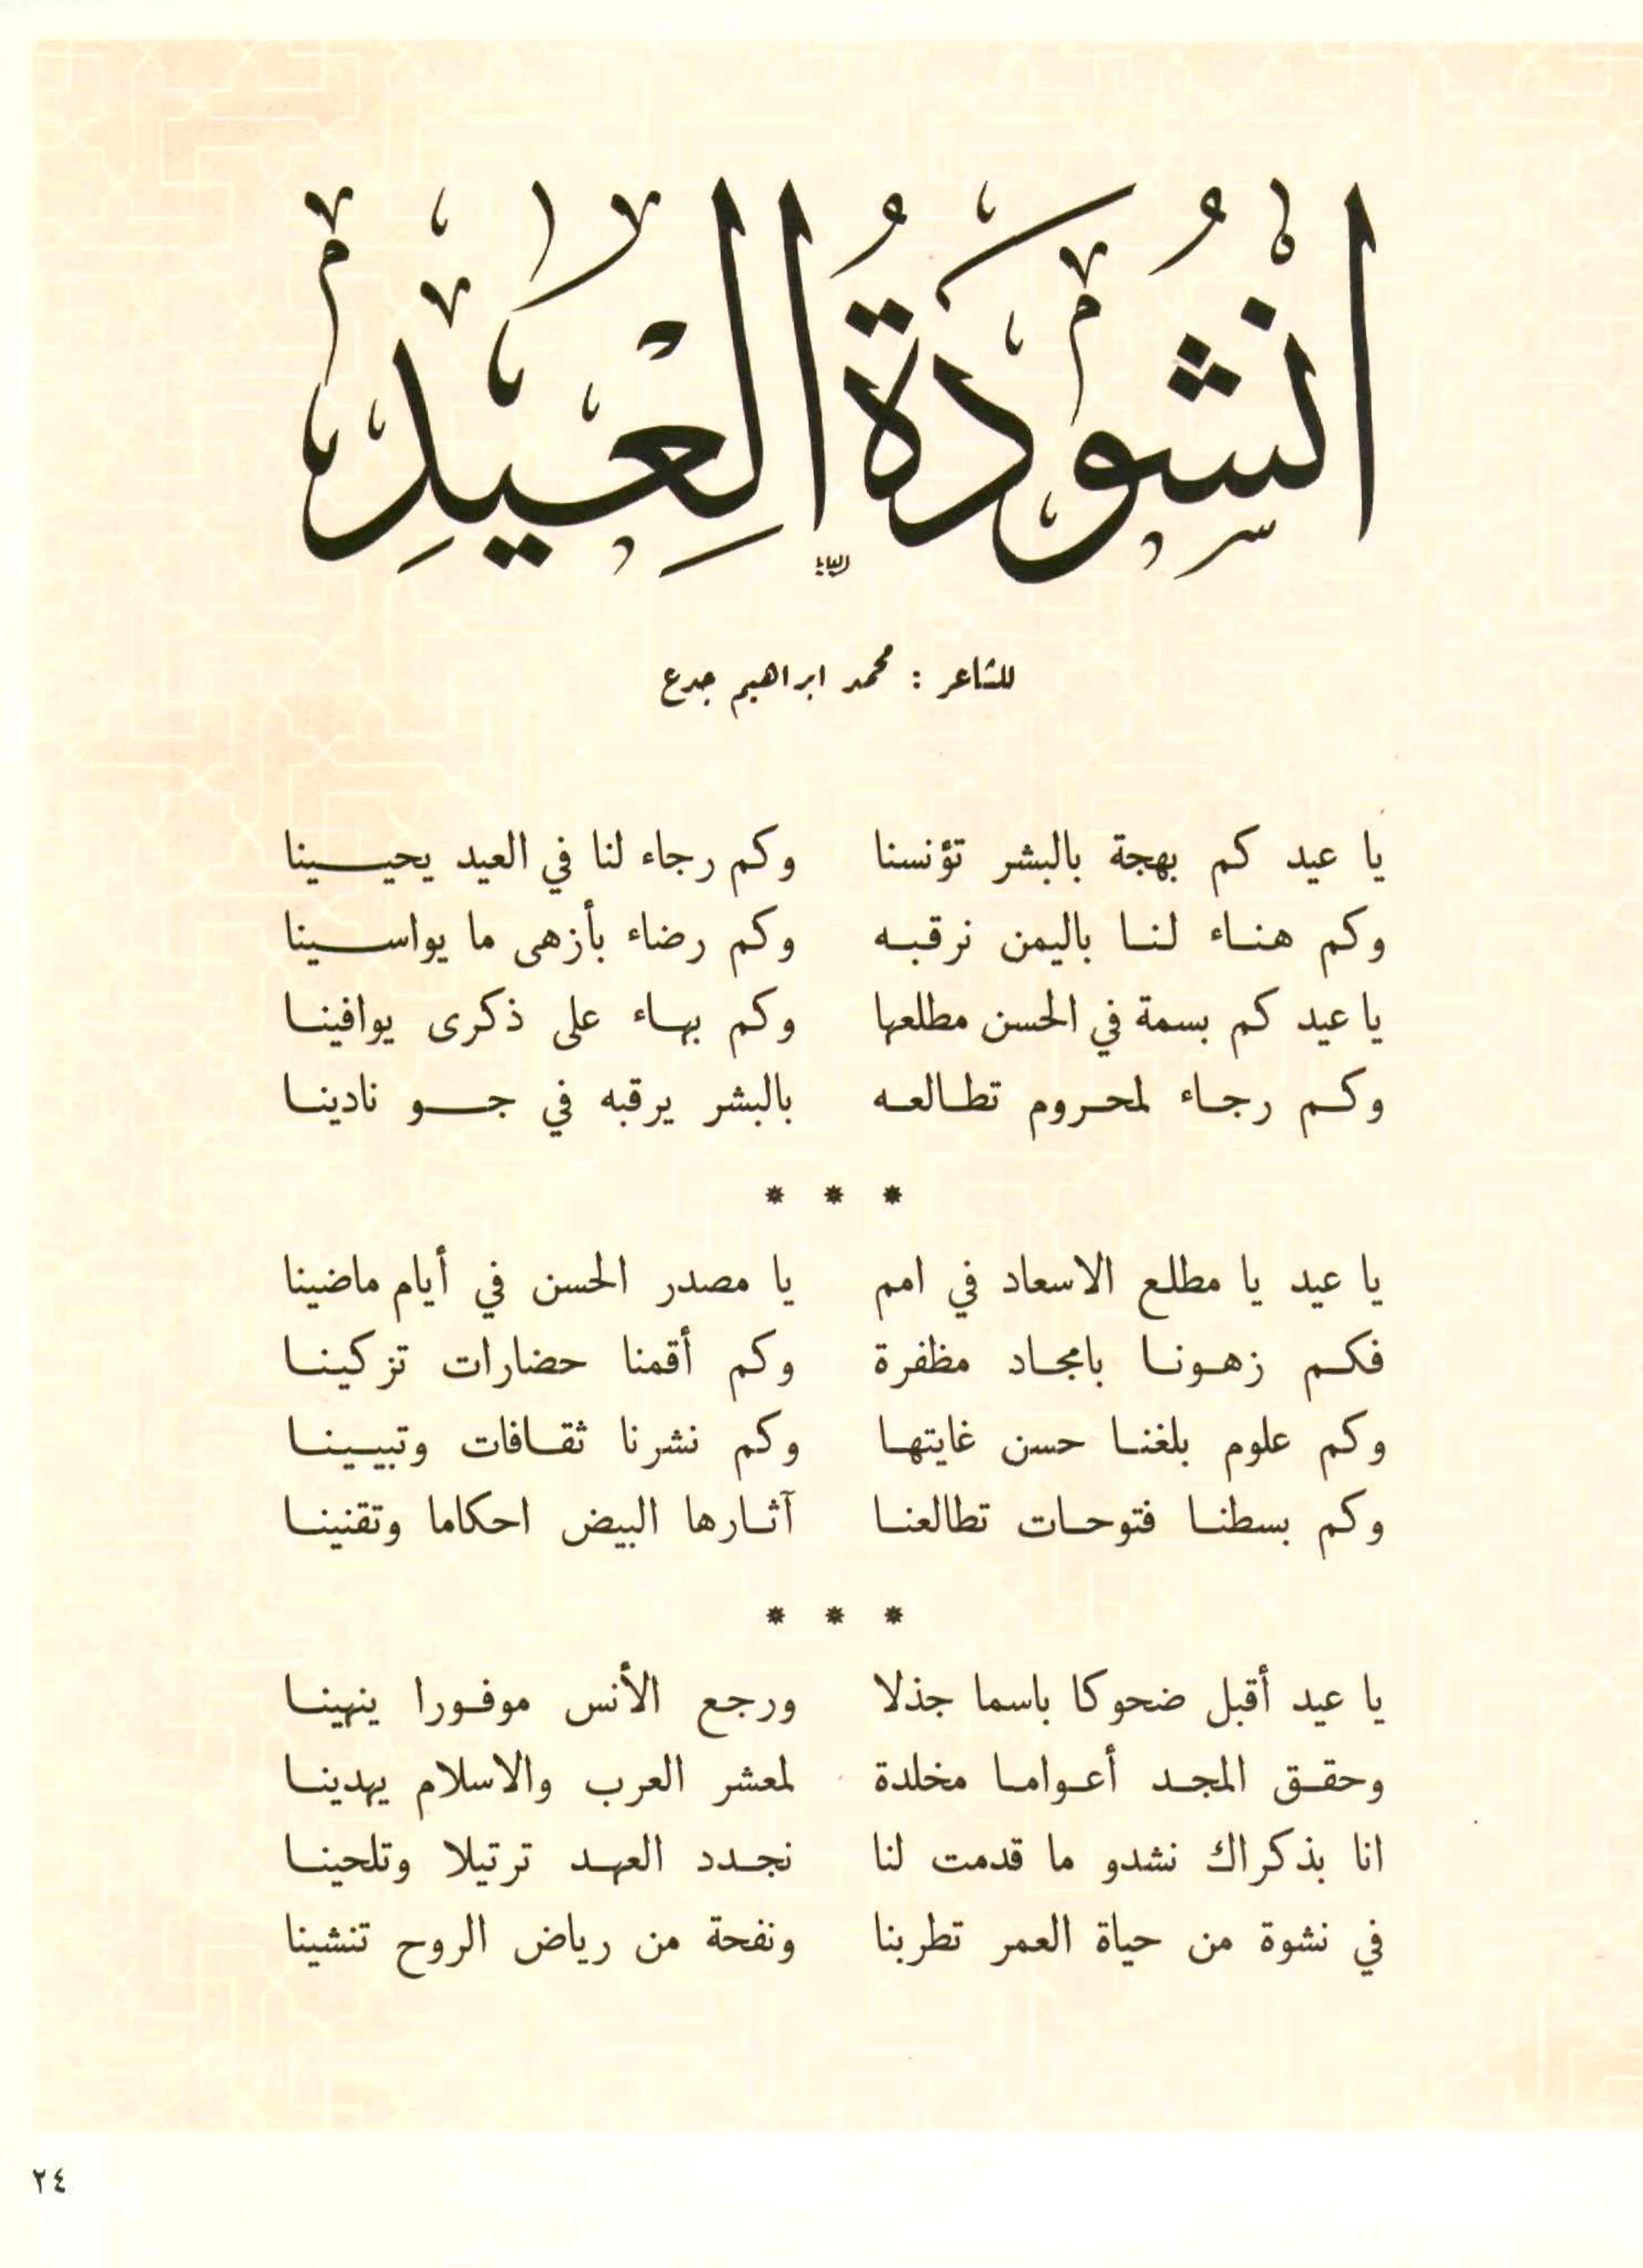 انْشُودَةُ الْعِيدِ
للشاعر : محمد ابراهيم جدع
يا عيد كم بهجة بالبشر تؤنسنا وكم رجاء لنا في العيد يحيينا
وكم هناء لنا باليمن نرقبه وكم رضاء بأزهى ما يواسينا
يا عيد كم بسمة في الحسن مطلعها وكم بهاء على ذكرى يوافينا
وكم رجاء لمحروم تطالعه بالبشر يرقبه في جو نادينا
* * *
يا عيد يا مطلع الاسعاد في امم يا مصدر الحسن في أيام ماضينا
فكم زهونا بامجاد مظفرة وكم أقمنا حضارات تزكينا
وكم علوم بلغنا حسن غايتها وكم نشرنا ثقافات وتبيينا
وكم بسطنا فتوحات تطالعنا آثارها البيض احكاما وتقنينا
* * *
يا عيد أقبل ضحوكا باسما جذلا ورجع الأنس موفورا ينهينا
وحقق المجد أعواما مخلدة لمعشر العرب والاسلام يهدينا
انا بذكراك نشدو ما قدمت لنا نجدد العهد ترتيلا وتلحينا
في نشوة من حياة العمر تطربنا ونفحة من رياض الروح تنشينا
٢٤